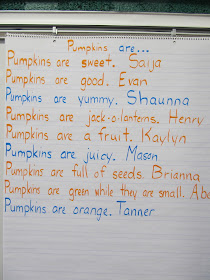 Pumpkins are...
Pumpkins are sweet. Saija
Pumpkins are good. Evan
Pumpkins are yummy. Shaunna
Pumpkins are jack-o-lanterns. Henry
Pumpkins are a fruit. Kaylyn
Pumpkins are juicy. Mason
Pumpkins are full of seeds. Brianna
Pumpkins are green while they are small.
Pumpkins are orange. Tanner